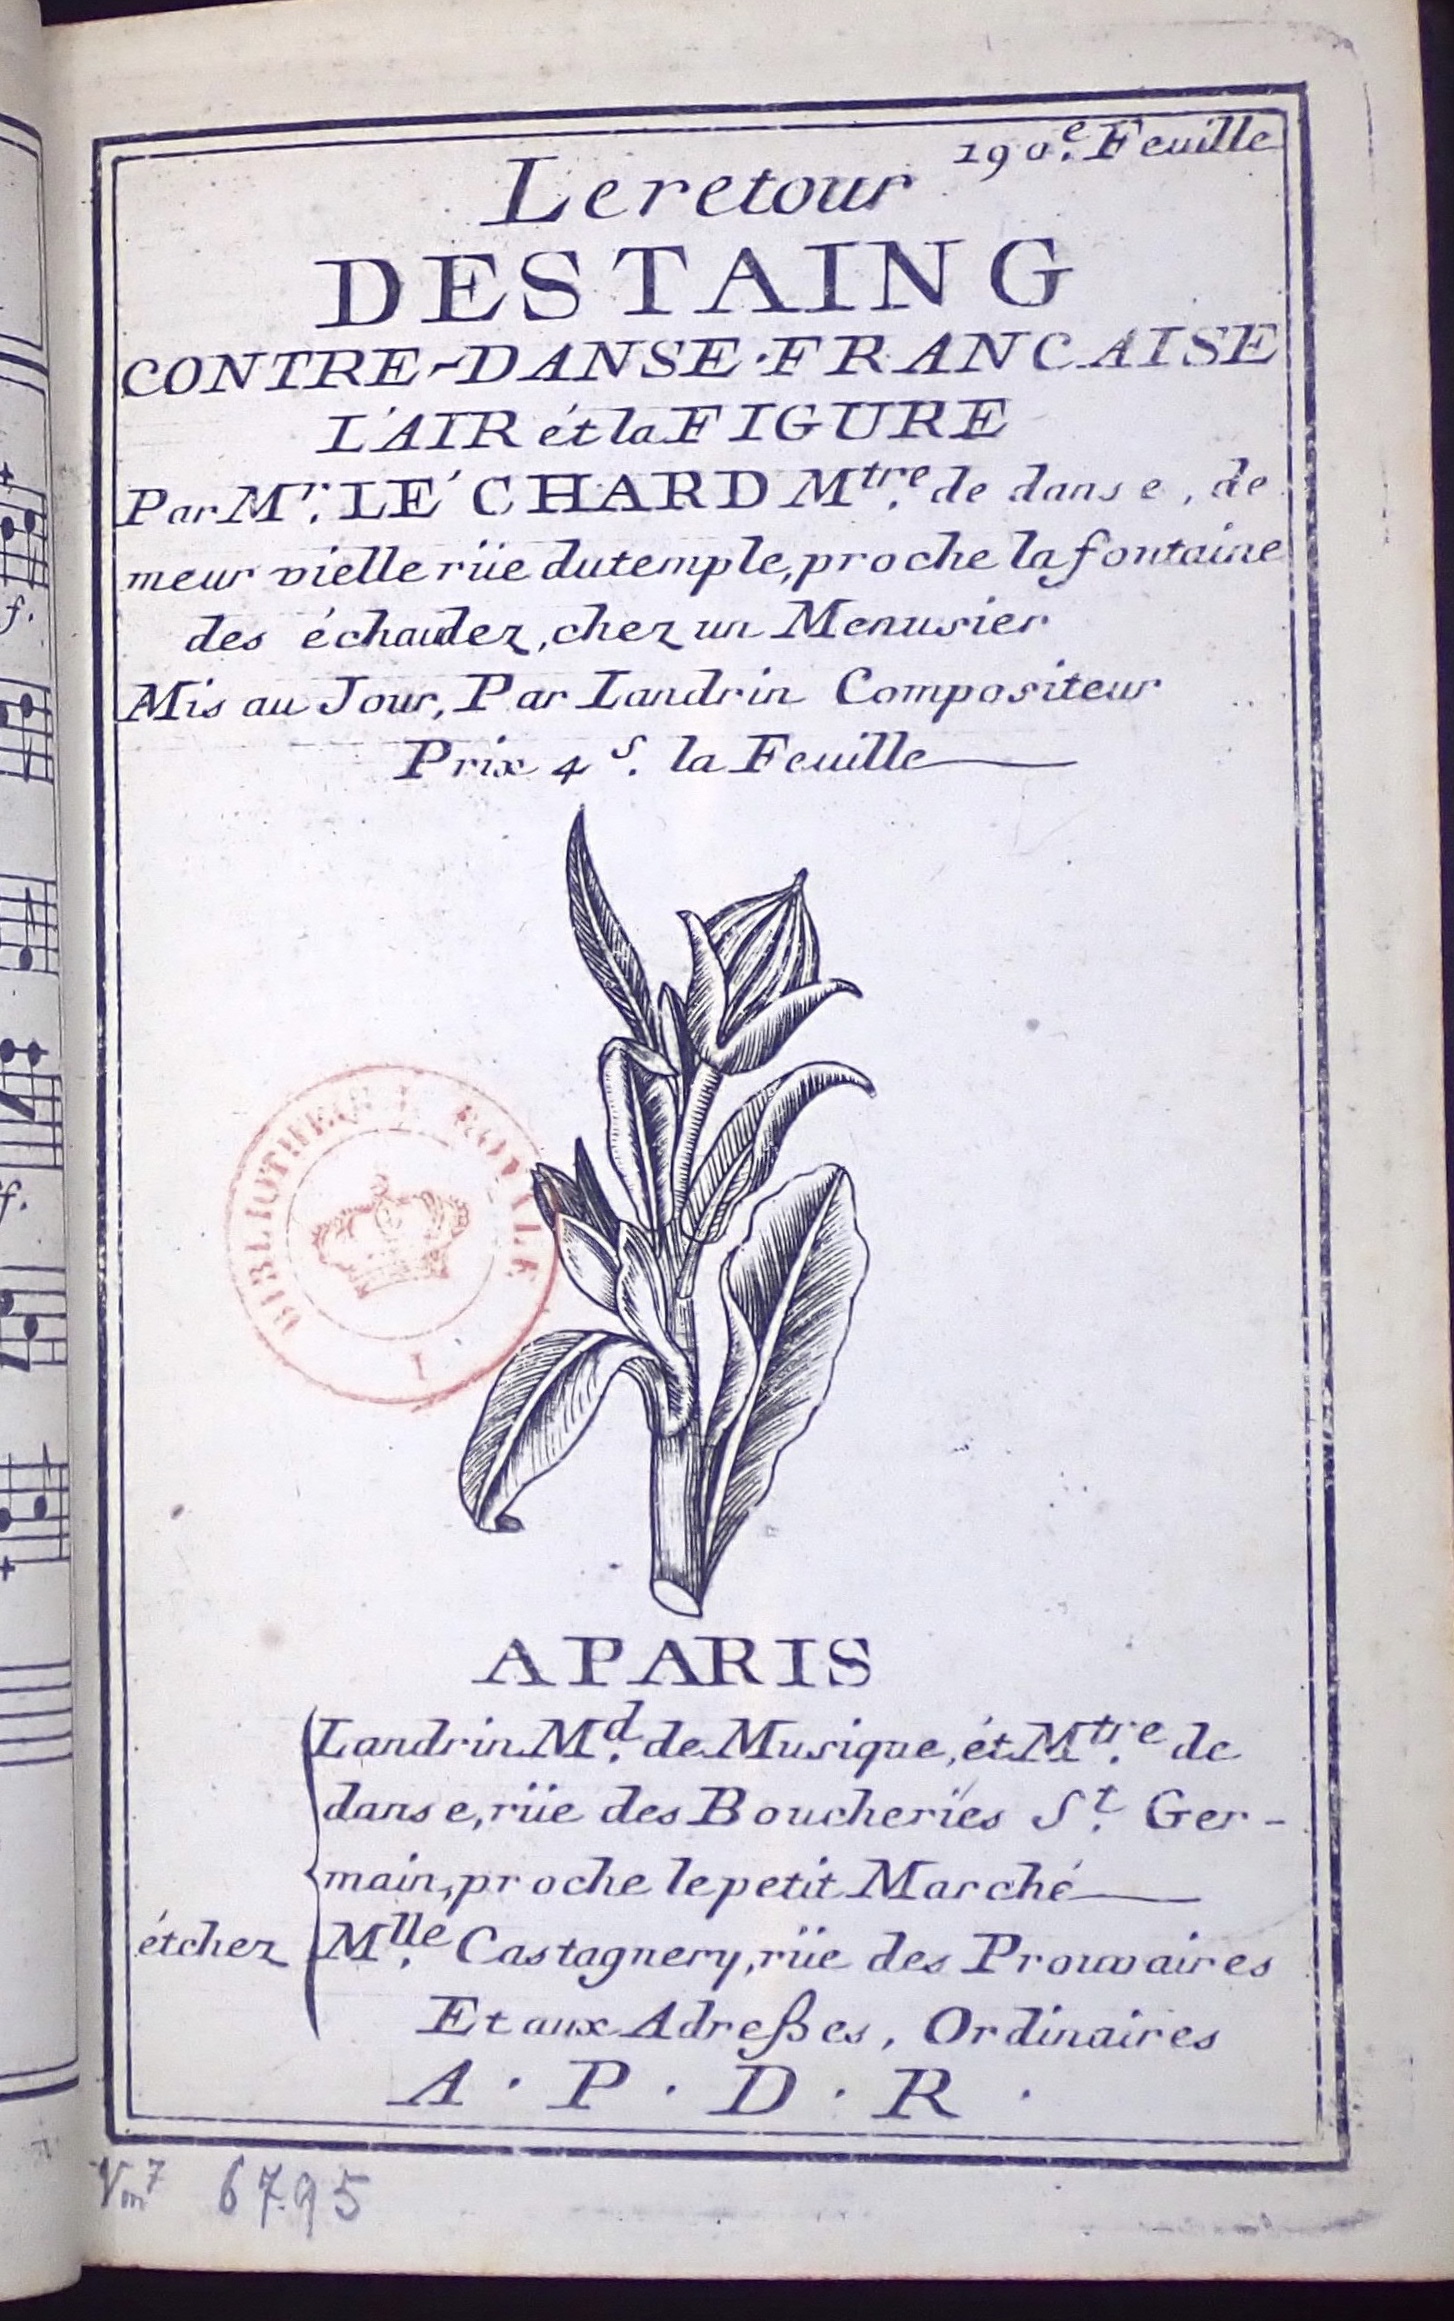 190.e Feuille
Le retour
DESTAING
CONTRE-DANSE·FRANCAISE
L'AIR ét la FIGURE
Par Mr. LÉCHARD Mtre. de danse, de
meur vielle rüe du temple, proche la fontaine
des échaudez, chez un Menusier
Mis au Jour, Par Landrin Compositeur
Prix 4 s. la Feuille
BIBLIOTHEQUE ROYALE
I
A PARIS
Landrin Md. de Musique, ét Mtre. de
danse, rüe des Boucheries St. Ger-
main, proche le petit Marché
ét chez Mlle. Castagnery, rüe des Prouvaires
Et aux Adreßes, Ordinaires
A · P · D · R ·
Vm7 6795